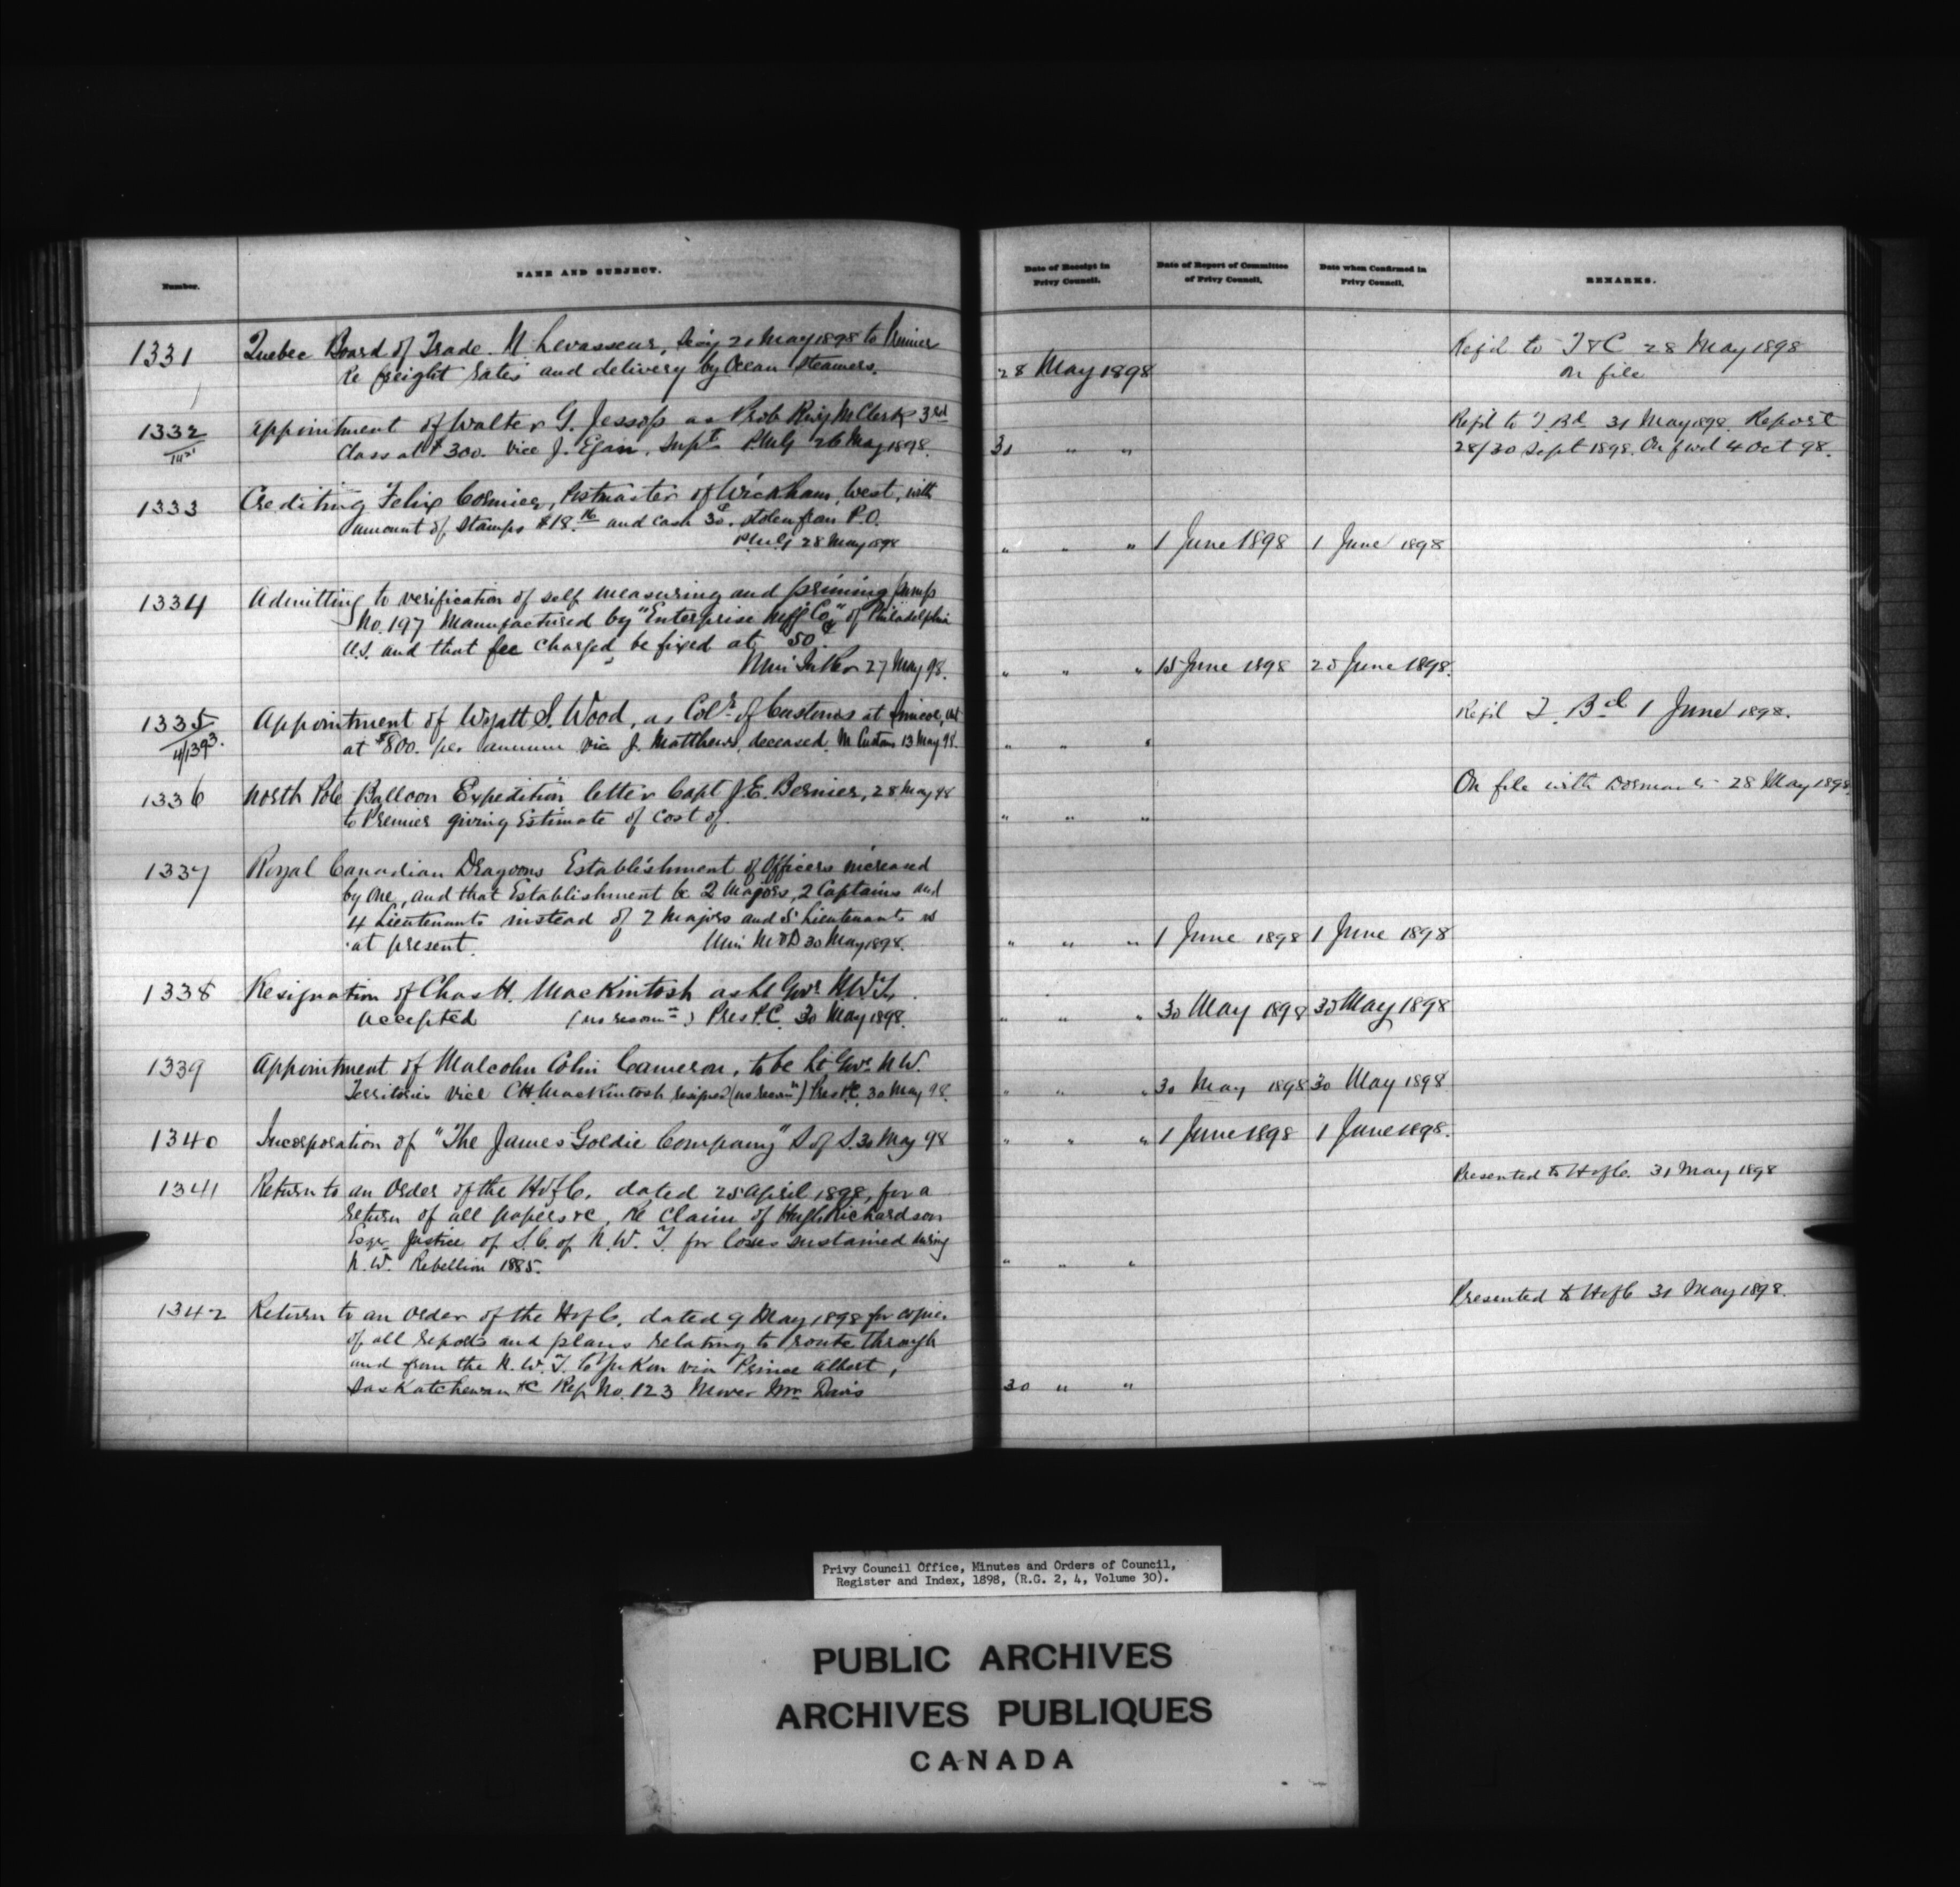 Number.
NAME AND SUBJECT.
Date of Receipt in
Privy Council.
Date of Report of Committee
of Privy Council.
Date when Confirmed in
Privy Council.
REMARKS.
1331
Quebec Board of Trade. N Levasseur, Secy 20 May 1898 to Premier
Re freight rates and delivery by Ocean Steamers.
28 May 1898
Refd to T & C 28 May 1898
On file
1332
Appointment of Walter G. Jessop as Prob Rwy M Clerk 3rd
Class at $300. vice J. Egan, Supt PMG 26 May 1898.
30 " "
Refd to T. Bd 31 May 1898. Report
28/30 Sept 1898. On fwd 4 Oct 98.
1333
Crediting Felix Cormier, Postmaster of Wickham West, with
amount of Stamps $18.16 and cash 30c. stolen from P.O.
PMG 28 May 1898
" " " 1 June 1898 1 June 1898
1334
Admitting to verification of self measuring and priming pumps
No. 197 Manufactured by "Enterprise Mfg Co" of Philadelphia
U.S. and that fee charged be fixed at 50c
Min In Rev 27 May 98.
" " " 15 June 1898 25 June 1898.
1335
4/1393.
Appointment of Wyatt S. Wood, as Colr of Customs at Simcoe, Ont
at $800. per annum vice J. Matthews, deceased. M Customs 13 May 98.
" " "
Refd T. Bd 1 June 1898.
1336
North Pole Balloon Expedition letter Capt J.E. Bernier, 28 May 98
to Premier giving Estimate of Cost of.
" " "
On file with 28 May 1898.
1337
Royal Canadian Dragoons Establishment of Officers increased
by one, and that Establishment be 2 Majors, 2 Captains and
4 Lieutenants instead of 2 Majors and 5 Lieutenants as
at present. Min M & D 30 May 1898.
" " " 1 June 1898 1 June 1898
1338
Resignation of Chas H. MacKintosh as Lt Govr N.W.T.
accepted (no recomn) Pres P.C. 30 May 1898.
" " " 30 May 1898 30 May 1898
1339
Appointment of Malcolm Colin Cameron, to be Lt Govr N.W.
Territories vice CH. MacKintosh resigned (no recomn) Pres P.C. 30 May 98.
" " " 30 May 1898 30 May 1898
1340
Incorporation of "The James Goldie Company" S of S. 30 May 98
" " " 1 June 1898 1 June 1898.
1341
Return to an Order of the H of C. dated 25 April 1898, for a
return of all papers &c, re Claim of Hugh Richardson
Esqr Justice of S.C. of N.W.T. for losses sustained during
N.W. Rebellion 1885.
" " "
Presented to H of C. 31 May 1898
1342
Return to an Order of the H of C. dated 9 May 1898 for copies
of all reports and plans relating to route through
and from the N.W.T. to Yukon via Prince Albert,
Saskatchewan &c Rep No. 123 Mover Mr Davis
30 " "
Presented to H of C 31 May 1898.
Privy Council Office, Minutes and Orders of Council,
Register and Index, 1898, (R.G. 2, 4, Volume 30).
PUBLIC ARCHIVES
ARCHIVES PUBLIQUES
CANADA